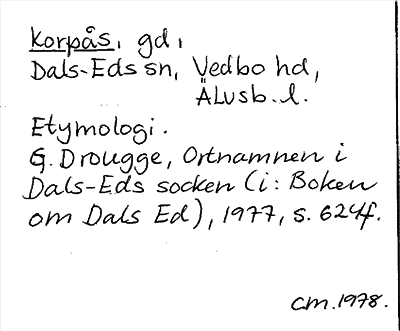 Korpås, gd,
Dals-Eds sn, Vedbo hd,
Älvsb. l.
Etymologi.
G. Drougge, Ortnamnen i
Dals-Eds socken (i: Boken
om Dals Ed), 1977, s. 624f.
cm. 1978.